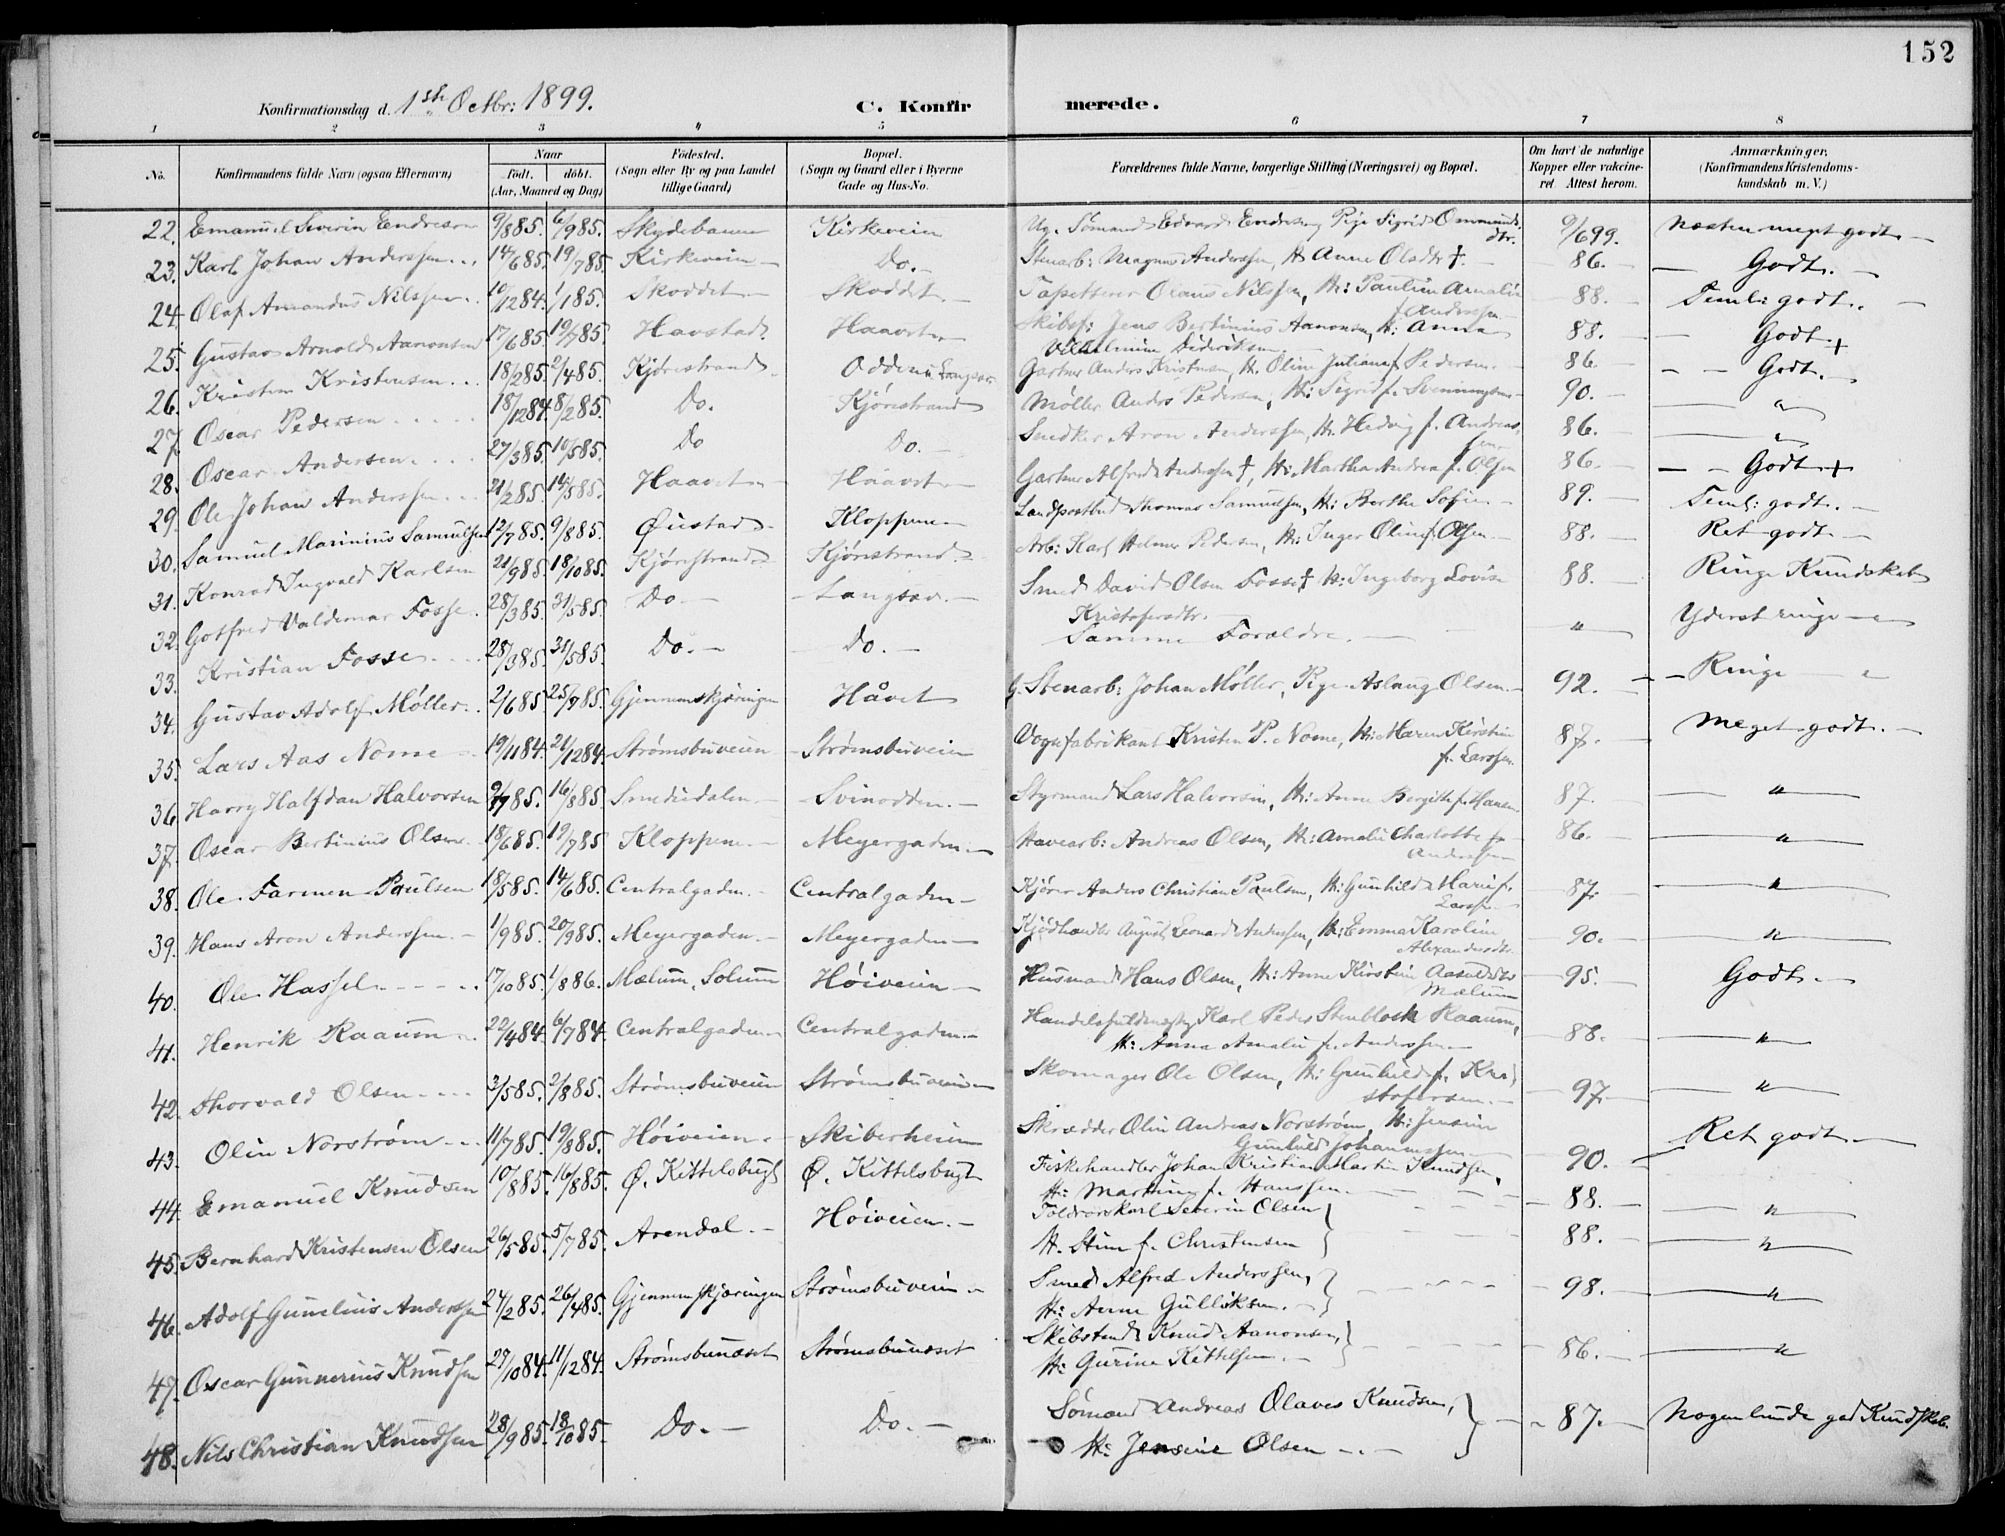 152
Konfirmationsdag d. 1ste Octbr: 1899.
C. Konfirmerede.
1 2 3 4 5 6 7 8
No. Konfirmandens fulde Navn (ogsaa Efternavn) Naar født. døbt. (Aar, Maaned og Dag) Fødested. (Sogn eller By og paa Landet tillige Gaard) Bopæl. (Sogn og Gaard eller i Byerne Gade og Hus-No. Forældrenes fulde Navne, borgerlige Stilling (Næringsvei) og Bopæl. Om havt de naturlige Kopper eller vakcineret. Attest herom. Anmærkninger, (Konfirmandens Kristendomskundskab m. V.)
22. Emanuel Severin Endresen 9/885. 6/985. Skydebanen Kirkeveien Ug. Sømand Edvard Endresen, Pige Sigrid Ommunds dtr. 9/699. Næsten meget godt
23. Karl Johan Anderssen 14/685. 19/785. Kirkeveien Do. Stenarb: Magnus Anderssen, H: Anne Olsdtr †. 86. Godt.
24. Olaf Amandus Nilssen 10/1284. 1/185. Skoddet Skoddet. Tapetserer Olaus Nilssen, H: Pauline Amalie f. Anderssen 88. Teml: godt.
25. Gustav Arnold Aanonsen 17/685. 19/785. Havstad. Haavet Skibsf: Jens Bertinius Aanonsen, H: Anna Vilhelmine Dideriksen 88. Godt +
26. Kristen Kristensen 18/285. 2/485. Kjørrestrand Odden, Langsæ Gartner Anders Kristensen, H. Oline Juliane f. Pedersen. 86. Godt.
27. Oscar Pedersen 18/1284. 8/285. Do. Kjørrestrand Møller Anders Pedersen, H: Sigrid f. Svenningsen 90. "
28. Oscar Andersen 27/385. 10/585. Do Do. Snedker Aron Anderssen, H. Hedvig f. Andreassen 86. "
29. Ole Johan Anderssen 21/285. 14/585. Haavet Haavet Gartner Alfred Anderssen †, H: Martha Andrea f. Olsen 86. Godt +
30. Samuel Marinius Samuelsen 12/785. 9/885. Øiestad Kloppene Landpostbud Thomas Samuelsen, H: Berthe Sofie 89. Teml: godt.
31. Konrad Ingvald Karlsen 21/985. 18/1085. Kjørrestrand Kjørrestrand Arb: Karl Helmer Pedersen, H: Inger Oline f. Olsen 88. Ret godt
32. Gotfred Valdemar Fosse 28/385. 31/585. Do Langsæv. Smed David Olsen Fosse † H: Ingeborg Lovise Kristofersdtr. 88. Ringe Kundskab
33. Kristian Fosse 28/385. 31/585. Do. Do. Samme Forældre. " Yderst ringe
34. Gustav Adolf Møller 2/685. 25/785. Gjennemskjæringen Håvet G. Stenarb: Johan Møller, Pige Aslaug Olsen. 92. Ringe "
35. Lars Aas Nome 19/1184. 21/1284. Strømsbuveien Strømsbuveien Vognfabrikant Kristen P. Nome, H: Maren Kirstine f. Larssen. 87. Meget godt.
36. Harry Halfdan Halvorsen 9/785. 16/885. Smededalen. Svinodden. Styrmand Lars Halvorsen, H: Anne Bergithe f. Hansen. 87. "
37. Oscar Bertinius Olsen 18/685. 19/785 Kloppene Meyergaden Havearb: Andreas Olsen, H: Amalie Charlotte f. Anderssen 86. "
38. Ole Farmen Paulsen 18/585. 14/685. Centralgaden. Centralgaden Kjører Anders Christian Paulsen, H: Gunhild Marie f. Larsen 87. "
39. Hans Aron Anderssen 1/985. 20/985. Meyergaden. Meyergaden Kjødhandler August Leonard Anderssen, H: Emma Karoline Alexandersdtr. 90. "
40. Ole Hassel 17/1085. 1/886. Mælum, Solum Høiveien Husmand Hans Olsen, H: Anne Kirstine Mælum 95. Godt.
41. Henrik Raaum 22/484. 6/784. Centralgaden Centralgaden Handelsfuldmægtig Karl Peder Stenblock Raaum, H: Anna Amalie f. Anderssen 88. "
42. Thorvald Olsen 3/585. 2/885. Strømsbuveien Strømsbuveien Skomager Ole Olsen, H: Gunhild f. Kristofersen. 97. "
43. Olin Norstrøm 11/785. 19/885. Høiveien Skiberheien Skrædder Olin Andreas Norstrøm, H: Jensine Gunhild Johannessen 90. Ret godt
44. Emanuel Knudsen 10/885. 16/885. Ø. Kittelsbugt Ø. Kittelsbugt Fiskehandler Johan Kristian Martin Knudsen, H: Martine f. Hanssen. 88. "
45. Bernhard Kristensen Olsen 26/585. 5/785. Arendal. Høiveien. Toldrorskarl Severin Olsen H. Stine f. Christensen 88. "
46. Adolf Gunelius Anderssen 24/285. 26/485. Gjennemskjæringen Strømsbuveien Smed Alfred Anderssen, H: Anne Gulliksen. 98. "
47. Oscar Gunnerius Knudsen 29/1084. 11/1284. Strømsbunæset Strømsbunæset Skibstmd: Knud Aanonsen, H: Gurine Kittelsen. 86. "
48. Nils Christian Knudsen 28/985. 18/1085. Do. Do. Sømand Andreas Olaves Knudsen, H: Jensine Olsen 87. Nogenlunde god Kundskab.